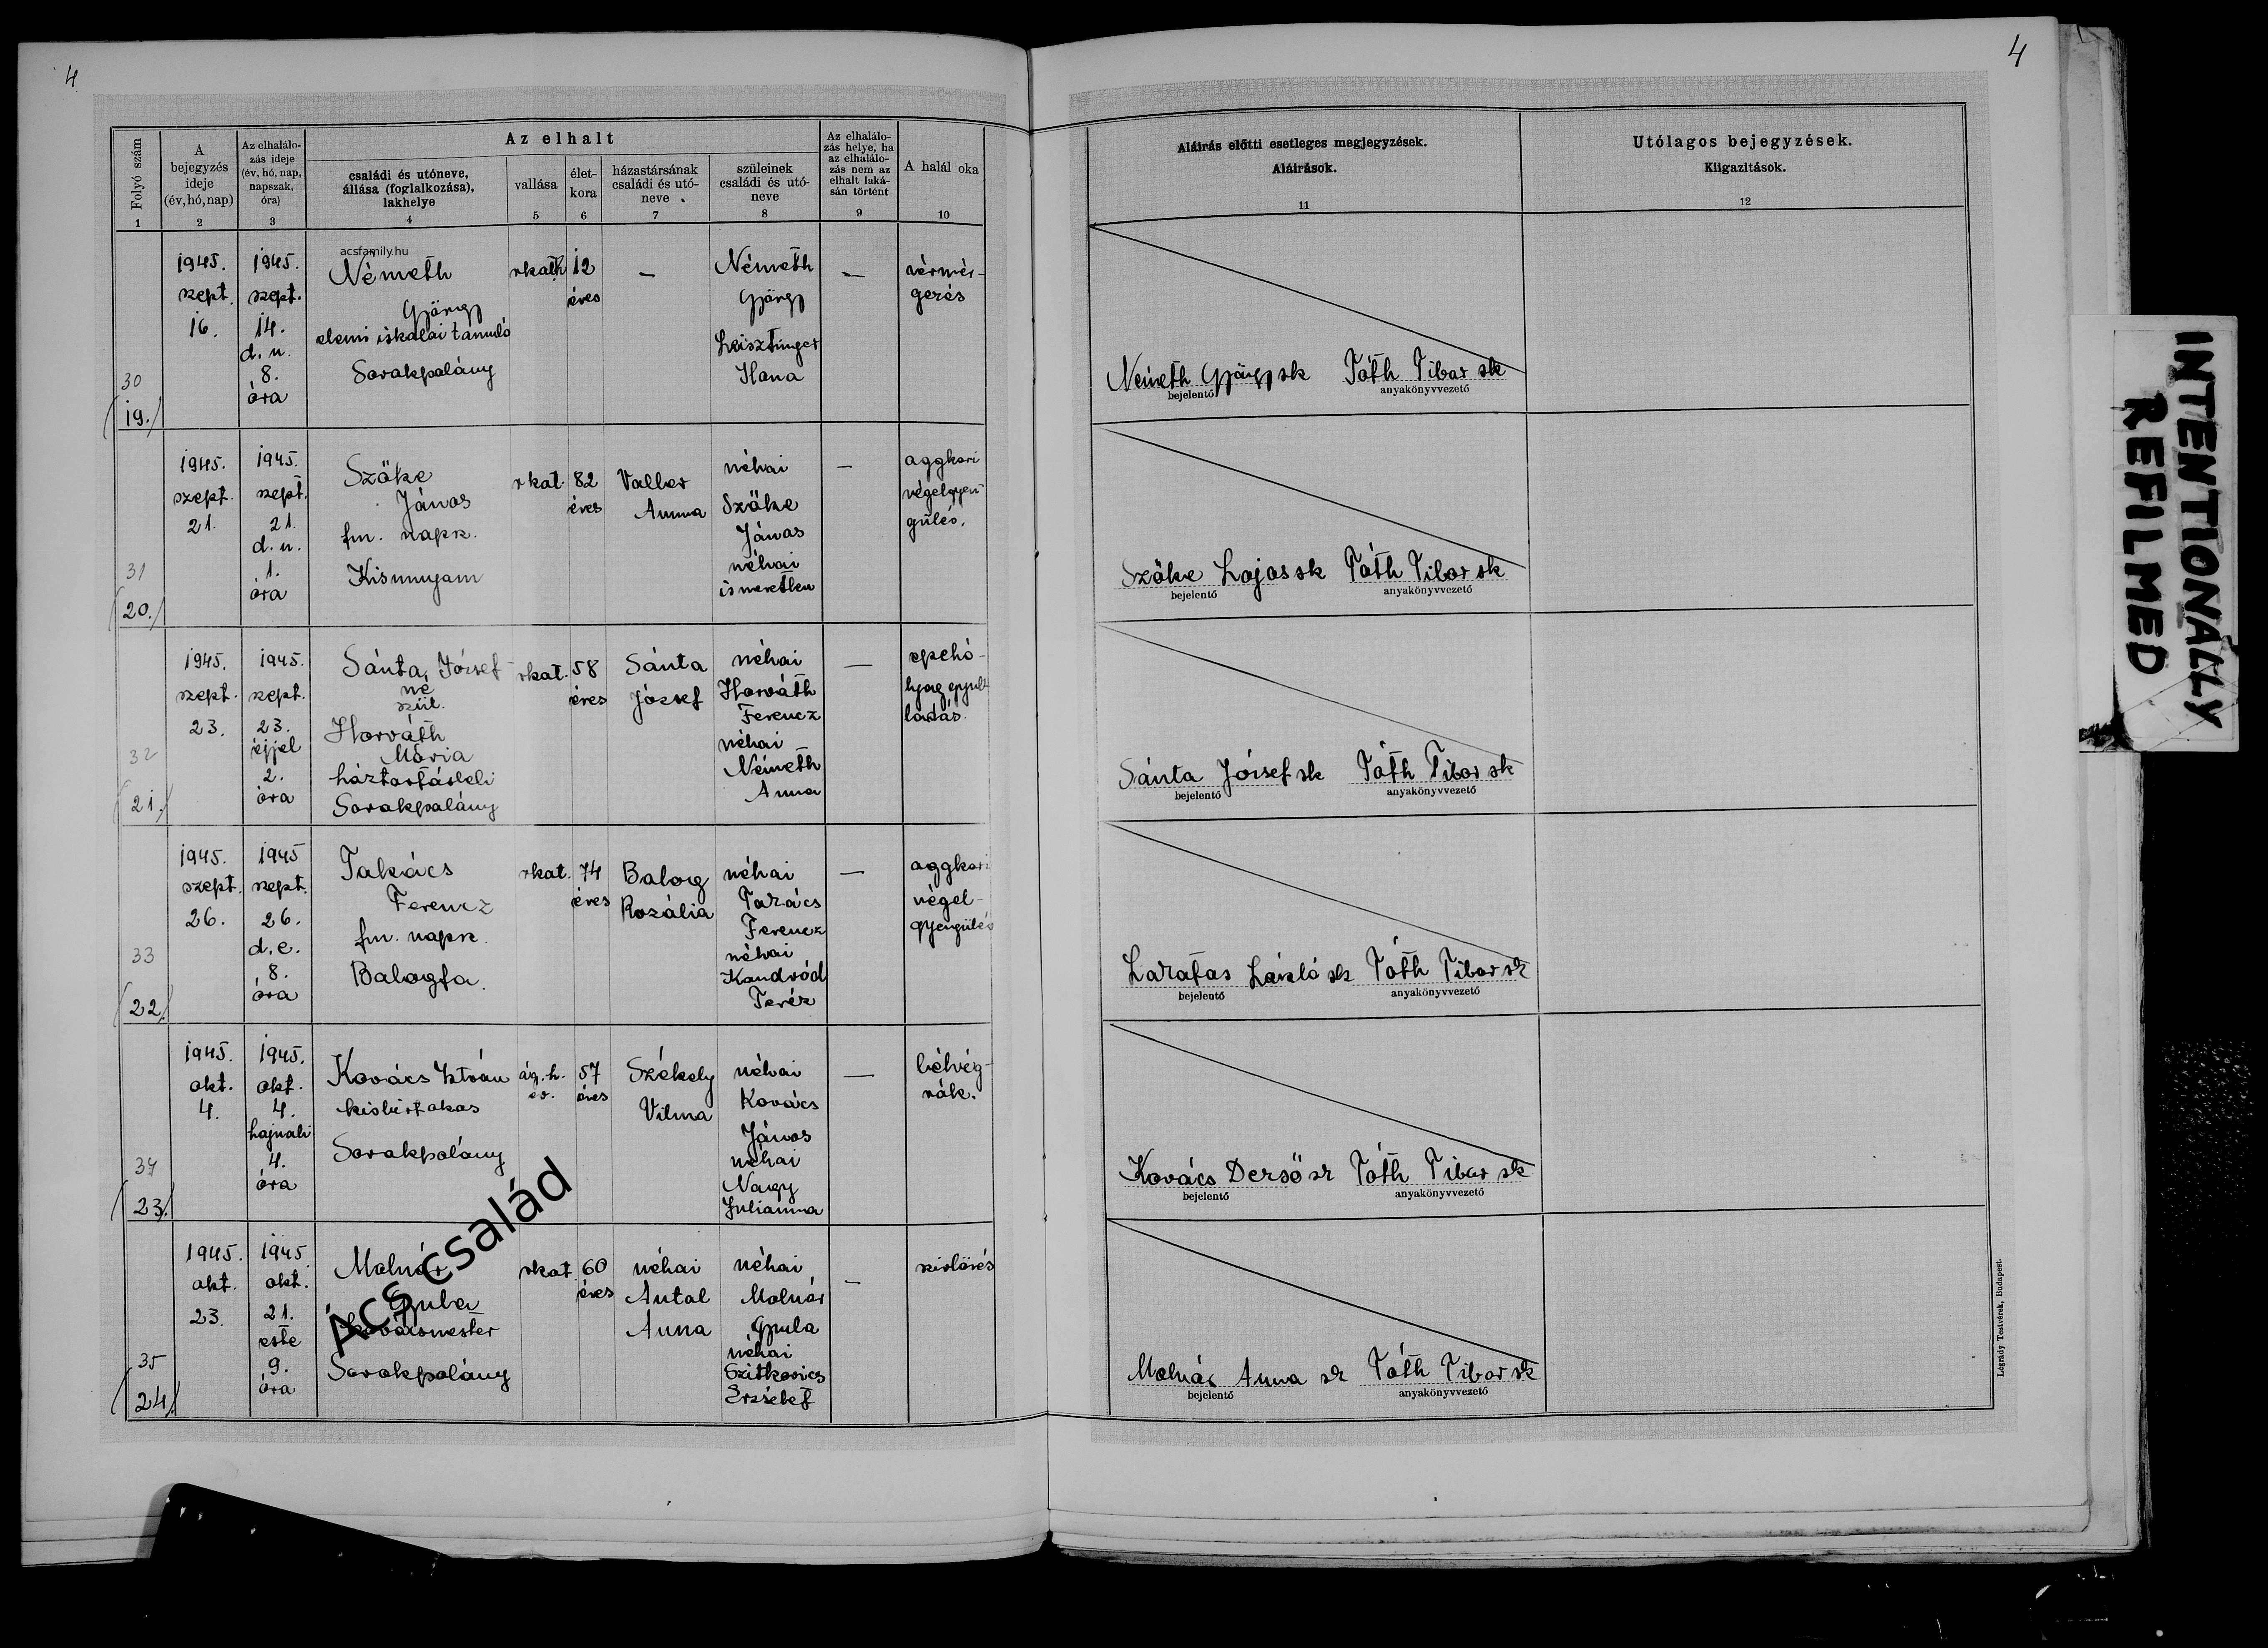 4
4
Folyó szám
A bejegyzés ideje (év, hó, nap)
Az elhalálo-
zás ideje
(év, hó, nap,
napszak,
óra)
Az elhalt
családi és utóneve,
állása (foglalkozása),
lakhelye
vallása
élet-
kora
házastársának
családi és utó-
neve
szüleinek
családi és utó-
neve
Az elhalálo-
zás helye, ha
az elhalálo-
zás nem az
elhalt laká-
sán történt
A halál oka
Aláirás előtti esetleges megjegyzések.
Aláirások.
Utólagos bejegyzések.
Kiigazitások.
1 2 3 4 5 6 7 8 9 10 11 12
acsfamily.hu
30
19.
1945.
szept.
16.
1945.
szept.
14.
d. u.
8.
óra
Németh
György
elemi iskolai tanuló
Sorokpolány
rkath
12
éves
—
Németh
György
Ilona
—
vérmér-
gezés
Németh György sk Tóth Tibor sk
bejelentő anyakönyvvezető
31
20.
1945.
szept.
21.
1945.
szept.
21.
d. u.
1.
óra
Szőke
János
fm. naps.
Kisunyom
rkat.
82
éves
Valler
Anna
néhai
Szőke
János
néhai
ismeretlen
—
aggkori
végelgyen-
gülés.
Szőke Lajos sk Tóth Tibor sk
bejelentő anyakönyvvezető
32
21.
1945.
szept.
23.
1945.
szept.
23.
éjjel
2.
óra
Sánta József
né
szül.
Horváth
Mária
háztartásbeli
Sorokpolány
rkat.
58
éves
Sánta
József
néhai
Horváth
Ferencz
néhai
Németh
Anna
—
epehó-
lyag gyul-
ladás.
Sánta József sk Tóth Tibor sk
bejelentő anyakönyvvezető
33
22.
1945.
szept.
26.
1945
szept.
26.
d. e.
8.
óra
Takács
Ferencz
fm. naps.
Balogfa.
rkat.
74
éves
Balog
Rozália
néhai
Takács
Ferencz
néhai
Teréz
—
aggkori
végel-
gyengülés
László sk Tóth Tibor sk
bejelentő anyakönyvvezető
34
23.
1945.
okt.
4.
1945.
okt.
4.
hajnali
4.
óra
Kovács István
kisbirtokos
Sorokpolány
ág. h.
ev.
57
éves
Székely
Vilma
néhai
Kovács
János
néhai
Nagy
Julianna
—
bélvég-
rák.
Kovács Dezső sk Tóth Tibor sk
bejelentő anyakönyvvezető
35
24.
1945.
okt.
23.
1945
okt.
21.
este
9.
óra
Molnár
Gyula
kovácsmester
Sorokpolány
rkat
60
éves
néhai
Antal
Anna
néhai
Molnár
Gyula
néhai
Szitkovics
Erzsébet
—
Molnár Anna sk Tóth Tibor sk
bejelentő anyakönyvvezető
Ács család
Légrády Testvérek, Budapest.
INTENTIONALLY
REFILMED